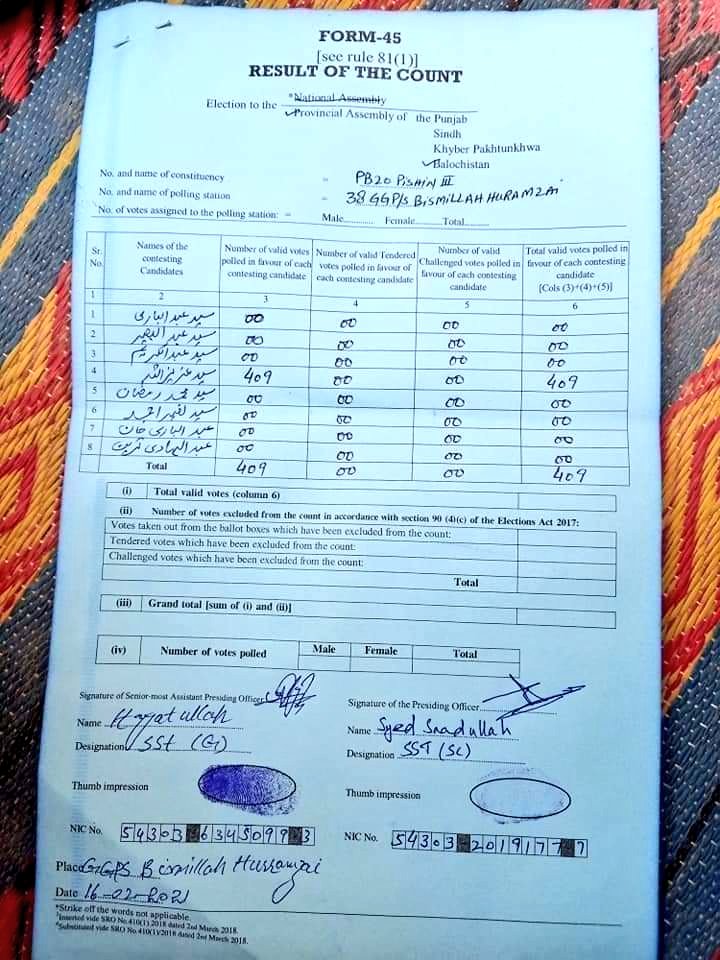 FORM-45
[see rule 81(1)]
RESULT OF THE COUNT
Election to the *National Assembly
Provincial Assembly of the Punjab
Sindh
Khyber Pakhtunkhwa
Balochistan
No. and name of constituency = PB20 PISHIN III
No. and name of polling station = 38 GGP/S BISMILLAH HURAMZAI
No. of votes assigned to the polling station: = Male............ Female.........Total.........
Sr. No. Names of the contesting Candidates Number of valid votes polled in favour of each contesting candidate Number of valid Tendered votes polled in favour of each contesting candidate Number of valid Challenged votes polled in favour of each contesting candidate Total valid votes polled in favour of each contesting candidate [Cols (3)+(4)+(5)]
1 2 3 4 5 6
1 سید عبدالباری 00 00 00 00
2 سید عبد البصیر 00 00 00 00
3 سید عبدالکریم 00 00 00 00
4 سید عزیزاللہ 409 00 00 409
5 سید محمد رمضان 00 00 00 00
6 سید ظہیر احمد 00 00 00 00
7 عبدالباری خان 00 00 00 00
8 عبدالہادی ترین 00 00 00 00
Total 409 00 00 409
(i) Total valid votes (column 6)
(ii) Number of votes excluded from the count in accordance with section 90 (4)(c) of the Elections Act 2017:
Votes taken out from the ballot boxes which have been excluded from the count:
Tendered votes which have been excluded from the count:
Challenged votes which have been excluded from the count:
Total
(iii) Grand total [sum of (i) and (ii)]
(iv) Number of votes polled Male Female Total
Signature of Senior-most Assistant Presiding Officer
Signature of the Presiding Officer
Name Hayatullah
Name Syed Saadullah
Designation SST (G)
Designation SST (SC)
Thumb impression
Thumb impression
NIC No. 54303-6345099-3
NIC No. 54303-2019177-7
Place GGPS Bismillah Hurramzai
Date 16-02-2021
*Strike off the words not applicable.
Inserted vide SRO No.410(1) 2018 dated 2nd March 2018.
Substituted vide SRO No.410(1)/2018 dated 2nd March 2018.